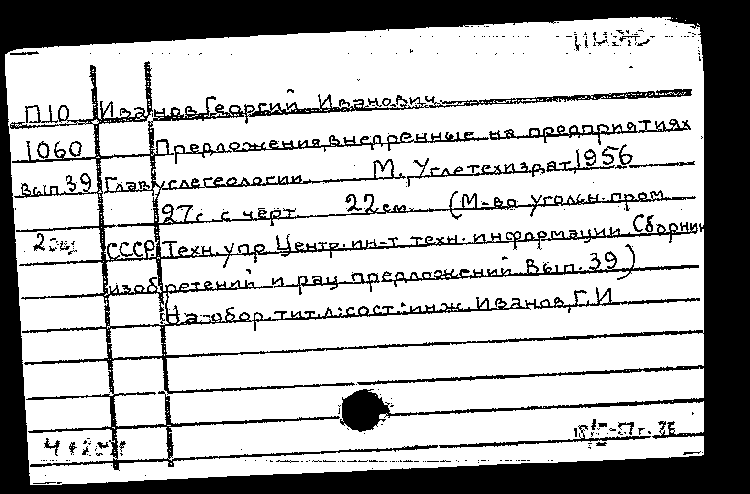 П10 Иванов, Георгий Иванович.
1060 Предложения, внедренные на предприятиях
Вып.39 Главуглегеологии. М., Углетехиздат, 1956
27с. с черт. 22см. (М-во угольн. пром.
2 экз СССР. Техн. упр. Центр. ин-т техн. информации. Сборник
изобретений и рац. предложений. Вып. 39)
На обор. тит. л: сост.: инж. Иванов, Г.И